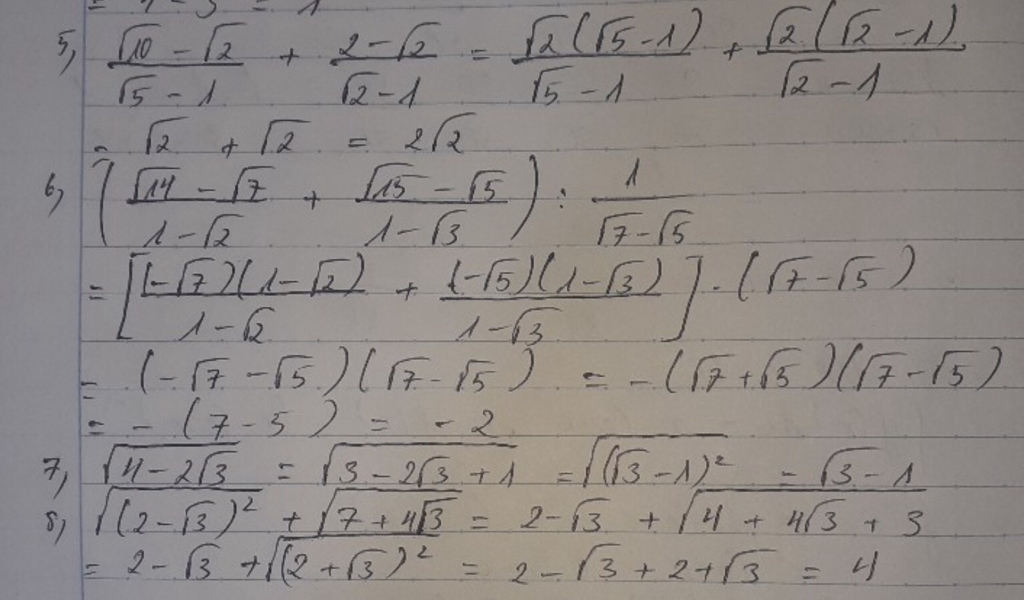 = 4 - 3 = 1
5, (√10 - √2)/(√5 - 1) + (2 - √2)/(√2 - 1) = √2(√5 - 1)/(√5 - 1) + √2(√2 - 1)/(√2 - 1)
= √2 + √2 = 2√2
6, ((√14 - √7)/(1 - √2) + (√15 - √5)/(1 - √3)) : 1/(√7 - √5)
= [(-√7)(1 - √2)/(1 - √2) + (-√5)(1 - √3)/(1 - √3)] · (√7 - √5)
= (-√7 - √5)(√7 - √5) = -(√7 + √5)(√7 - √5)
= -(7 - 5) = -2
7, √(4 - 2√3) = √(3 - 2√3 + 1) = √((√3 - 1)²) = √3 - 1
8, √((2 - √3)²) + √(7 + 4√3) = 2 - √3 + √(4 + 4√3 + 3)
= 2 - √3 + √((2 + √3)²) = 2 - √3 + 2 + √3 = 4